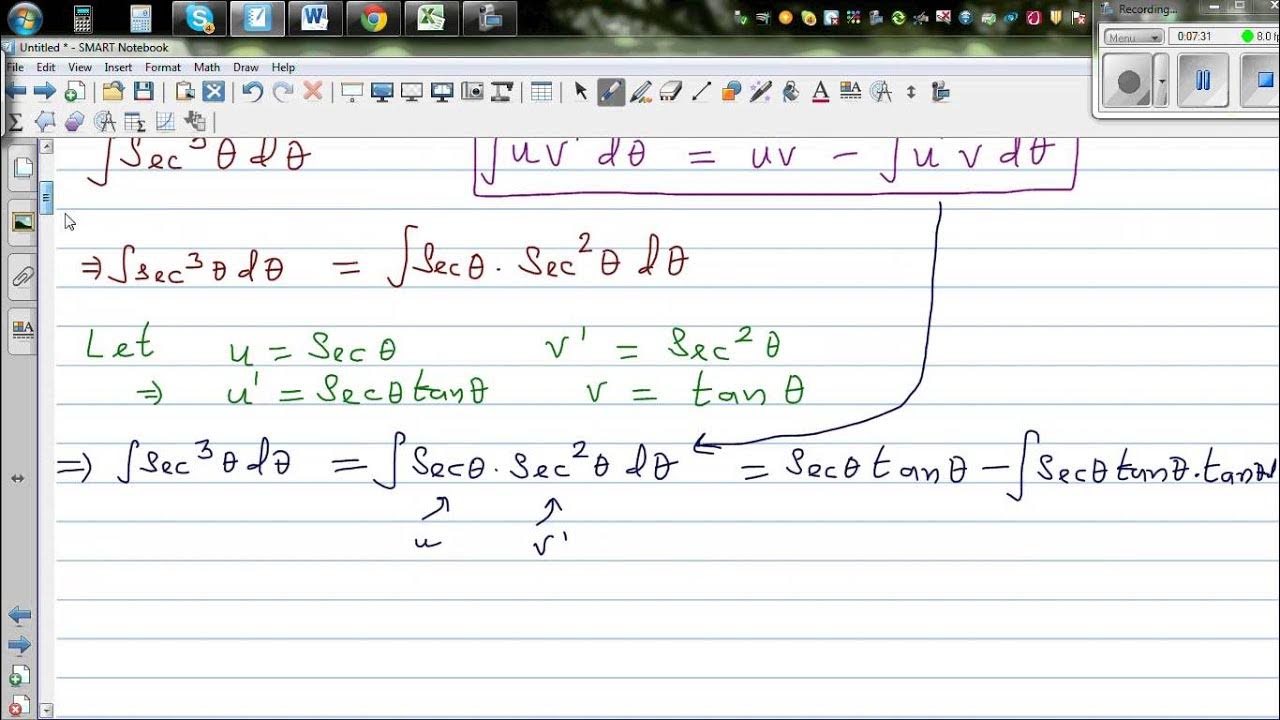 Recording...
Menu 0:07:31 8.0 f
Untitled * - SMART Notebook
File Edit View Insert Format Math Draw Help
∫Sec³θdθ ∫uv' dθ = uv - ∫u'v dθ
⇒ ∫sec³θdθ = ∫Secθ. Sec²θ dθ
Let u = Secθ v' = Sec²θ
⇒ u' = Secθtanθ v = tanθ
⇒ ∫Sec³θdθ = ∫Secθ. Sec²θ dθ = Secθtanθ - ∫Secθtanθ.tanθ
u v'